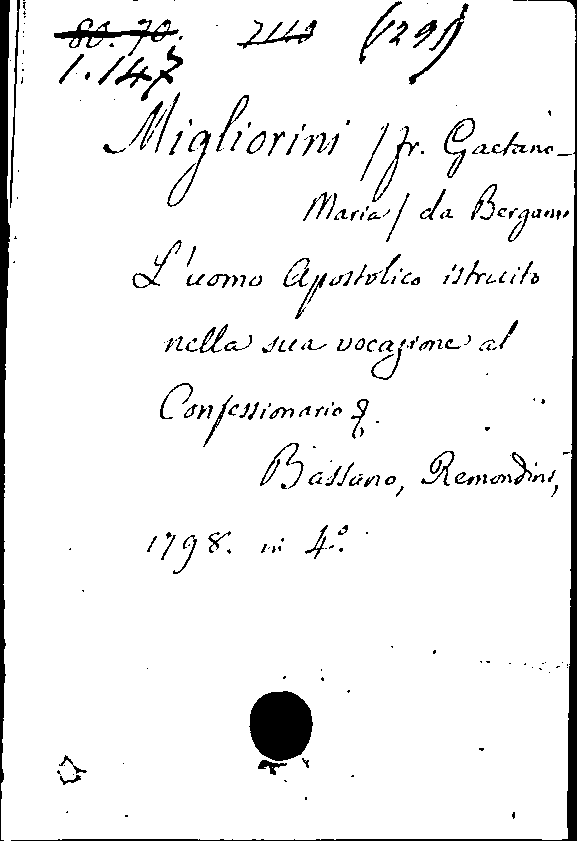 80. 70. 2113 (291)
1.147
Migliorini / fr. Gaetano-
Maria / da Bergamo
L'uomo Apostolico istruito
nella sua vocazione al
Confessionario &.
Bassano, Remondini,
1798. in 4º.